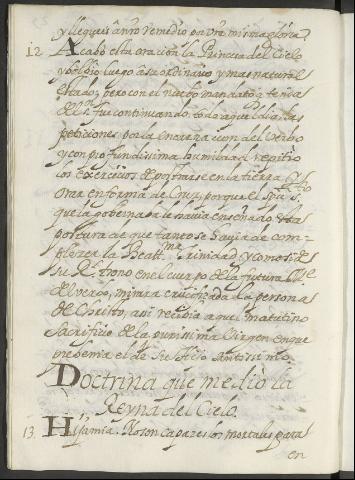 y llegueis â nro Remedio pa vra misma gloria.
12 Acabò esta oracion la Princesa del Cielo
y bolbio luego â su ordinario y mas natural
estado; pero con el nuebo mandato q̃ tenia
del Sr. fue continuando todo aquel dia las
peticiones por la encarnacion del Verbo
y con profundissima humildad repitio
los exercicios de postrarse en la tierra y
orar en forma de Cruz, porque el Spu Sto
que la gobernaba le havia enseñado esta
postura de que tanto se havia de com-
placer la Beatt.ma Trinidad y como si des
su Rl. trono en el cuerpo de la futura Me
del verbo, mirara crucificada la persona
de Christo, asi recibia aquel matutino
Sacrificio de la purissima Virgen en que
prebenia el de su Hijo santissimo
Doctrina que me dio la
Reyna del Cielo.
13. Hija mia. No son capazes los mortales para
en